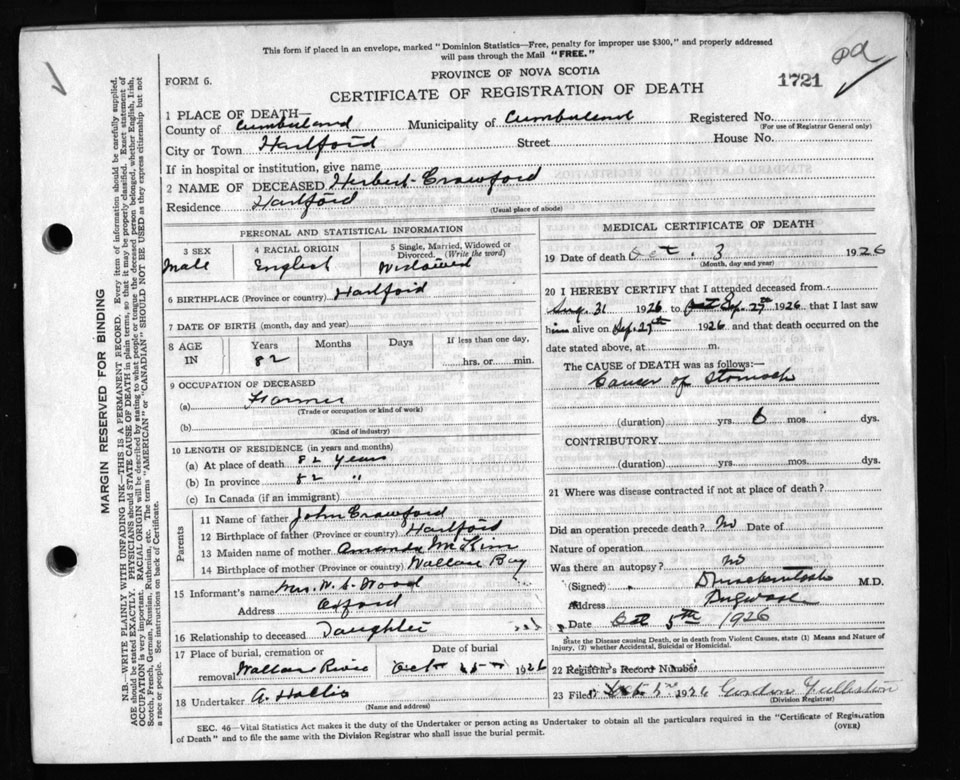 This form if placed in an envelope, marked "Dominion Statistics—Free, penalty for improper use $300," and properly addressed
will pass through the Mail "FREE."
PROVINCE OF NOVA SCOTIA
FORM 6.
CERTIFICATE OF REGISTRATION OF DEATH
1721
1 PLACE OF DEATH—
County of Cumberland Municipality of Cumberland Registered No.
(For use of Registrar General only)
City or Town Hartford Street House No.
If in hospital or institution, give name
2 NAME OF DECEASED Herbert Crawford
Residence Hartford
(Usual place of abode)
PERSONAL AND STATISTICAL INFORMATION
3 SEX 4 RACIAL ORIGIN 5 Single, Married, Widowed or
Divorced. (Write the word)
Male English Widowed
6 BIRTHPLACE (Province or country) Hartford
7 DATE OF BIRTH (month, day and year)
8 AGE IN Years Months Days If less than one day,
82 hrs. or min.
9 OCCUPATION OF DECEASED
(a) Farmer
(Trade or occupation or kind of work)
(b)
(Kind of industry)
10 LENGTH OF RESIDENCE (in years and months)
(a) At place of death 82 years
(b) In province 82 "
(c) In Canada (if an immigrant)
Parents
11 Name of father John Crawford
12 Birthplace of father (Province or country) Hartford
13 Maiden name of mother Amanda McKim
14 Birthplace of mother (Province or country) Wallace Bay
15 Informant's name Mrs. W. S. Wood
Address Oxford
16 Relationship to deceased Daughter
17 Place of burial, cremation or removal Date of burial
Wallace River Oct 1926
18 Undertaker A. Hollis
(Name and address)
MEDICAL CERTIFICATE OF DEATH
19 Date of death Oct. 3 1926
(Month, day and year)
20 I HEREBY CERTIFY that I attended deceased from
Aug. 31 1926 to Sep. 27th 1926, that I last saw
him alive on Sep. 27th 1926 and that death occurred on the
date stated above, at m.
The CAUSE of DEATH was as follows:
Cancer of Stomach
(duration) yrs. 6 mos. dys.
CONTRIBUTORY
(duration) yrs. mos. dys.
21 Where was disease contracted if not at place of death?
Did an operation precede death? No Date of
Nature of operation
Was there an autopsy? No
(Signed) M.D.
Address Pugwash
Date Oct 5th 1926
State the Disease causing Death, or in death from Violent Causes, state (1) Means and Nature of
Injury, (2) whether Accidental, Suicidal or Homicidal.
22 Registrar's Record Number
23 Filed 1926 Gordon
(Division Registrar)
SEC. 46—Vital Statistics Act makes it the duty of the Undertaker or person acting as Undertaker to obtain all the particulars required in the "Certificate of Registration
of Death" and to file the same with the Division Registrar who shall issue the burial permit.
(OVER)
MARGIN RESERVED FOR BINDING
N.B.—WRITE PLAINLY WITH UNFADING INK—THIS IS A PERMANENT RECORD. Every item of information should be carefully supplied.
AGE should be stated EXACTLY. PHYSICIANS should STATE CAUSE OF DEATH in plain terms, so that it may be properly classified. Exact statement of
OCCUPATION is very important. RACIAL ORIGIN will be described by stating to what people or tongue the deceased person belonged, whether English, Irish,
Scotch, French, German, Russian, Ruthenian, etc. The terms "AMERICAN" or "CANADIAN" SHOULD NOT BE USED as they express citizenship but not
a race or people. See instructions on back of Certificate.